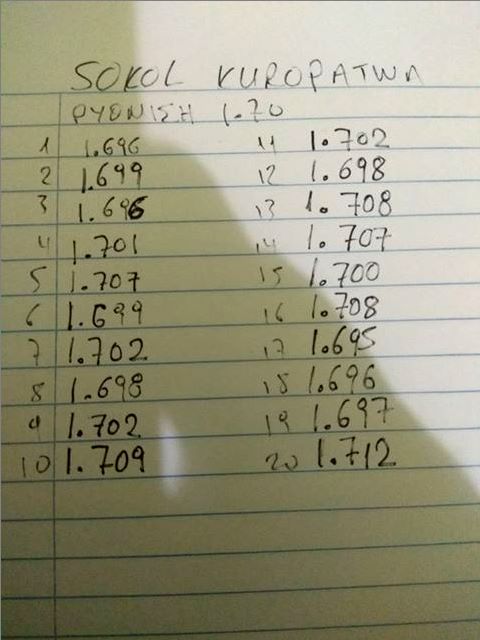 SOKOL KUROPATWA
РУБОЛІЗН 1.70
1 1.696 11 1.702
2 1.699 12 1.698
3 1.696 13 1.708
4 1.701 14 1.707
5 1.707 15 1.700
6 1.699 16 1.708
7 1.702 17 1.695
8 1.698 18 1.696
9 1.702 19 1.697
10 1.709 20 1.712